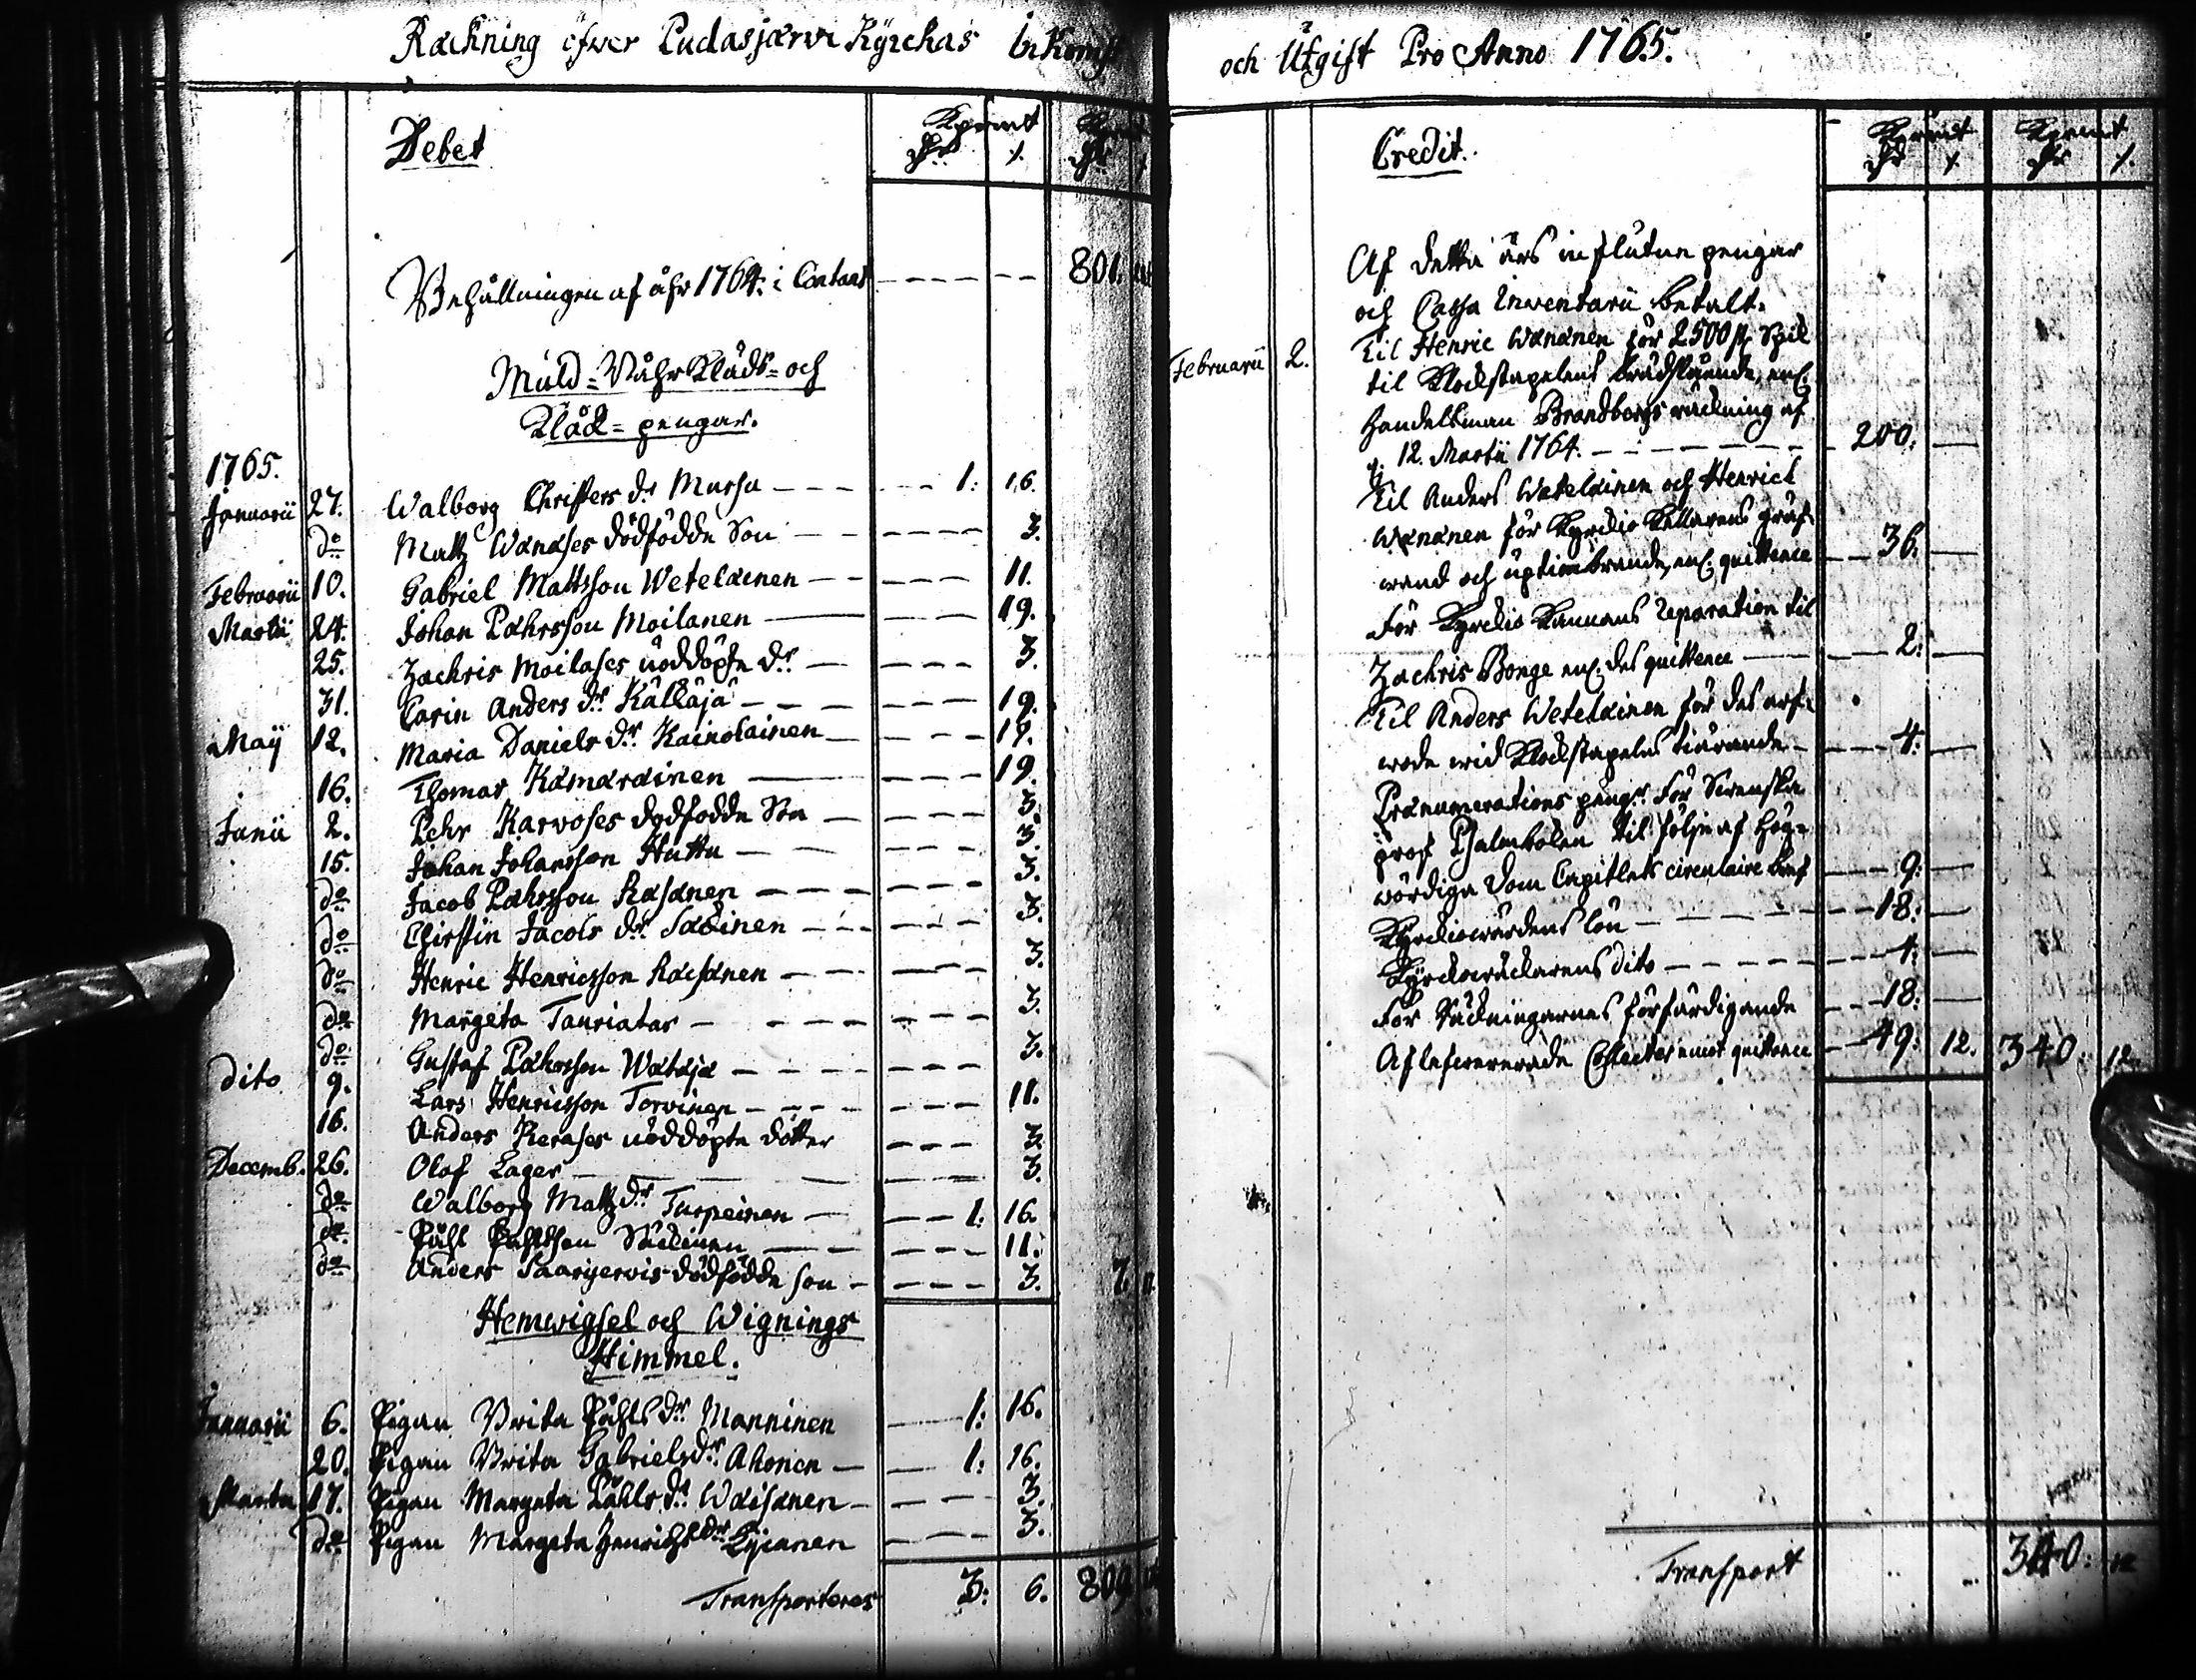 Räckning öfwer Pudasjärvi Kyrckas Inkomst
Debet
Kpmt Kpmt
Behållningen af åhr 1764. i Contant - - - 801.
Muld- Båhr Kläds- och
Kläck- pengar.
1765.
Januarii 27. Walborg Christers dr Mursu - - - 1: 16.
do Matz Wänäses dödfödde Son - - - 3.
Februarii 10. Gabriel Mattsson Weteläinen - - - 11.
Martii 24. Johan Pährsson Moilanen - - - 19.
25. Zachris Moilases nöddöpte dr - - - 3.
31. Carin Anders dr Källäjä - - - 19.
Maij 12. Maria Daniels dr Kainolainen - - - 19.
16. Thomas Kämäräinen - - - 19.
Junii 2. Pehr Karvoses dödfödde Son - - - 3.
15. Johan Johansson Huttu - - - 3.
do Jacob Pährsson Räsänen - - - 3.
do Chirstin Jacobs dr - - - 3.
do Henric Henricsson Räisänen - - - 3.
do Margeta Tauriatar - - - 3.
do Gustaf Pährsson Wätäjä - - - 3.
dito 9. Lars Henricsson Torvinen - - - 11.
16. Anders Keräses nöddöpte dotter - - - 3.
Decemb. 26. Olof Lager - - - 3.
do Walborg Matz dr Turpeinen - - - 1: 16.
do Påhl Påhlsson - - - 11.
do Anders Saarijervis dödfödde son - - - 3. 7.
Hemwigsel och Wignings
Himmel.
Januarii 6. Pigan Brita Påhls dr Manninen - 1: 16.
20. Pigan Brita Gabriels dr Ahonen - 1: 16.
Martii 17. Pigan Margeta Påhls dr Wäisänen - - - 3.
do Pigan Margeta Henrichs dr - - - 3.
Transporteres 3: 6. 809
och Utgift Pro Anno 1765.
Credit.
Kpmt Kpmt
Af detta års influtne pengar
och Cassa Inventarii betalt.
Februarii 2. Til Henric Wänänen för 2500 st. Spik
til Klockstapelens enl.
Handelsman Brandbergs räckning af
d. 12. Martii 1764. - - - 200.
Til Anders Weteläinen och Henrich
Wänänen för Kyrckio Källarens
och enl. quittence - - 36.
För Kyrckio Kannans reparation til
Zachris Bonge enl. des quittence - - 2:
Til Anders Weteläinen för des
wid Klockstapelns - - 4:
Prænumerations peng.r för Swenska
Psalmboken til följe af Hög-
wördiga Dom Capitlets circulaire bref - 9:
Kyrckiowärdens lön - - - 18:
Kyrckowäckarens dito - - - 4:
För Räckningarnas förfärdigande - 18:
Aflefwererade Collecter enligt quittence - 49: 12. 340: 12.
Transport 340: 12